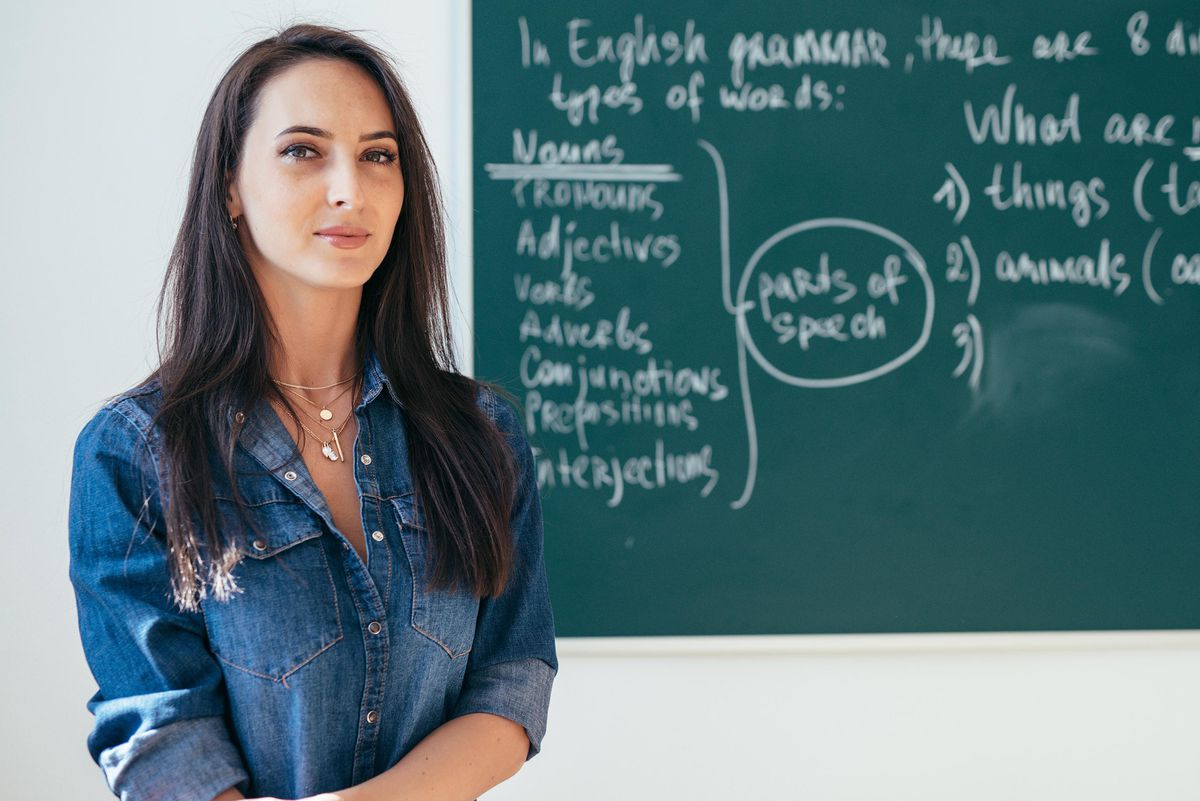 In English grammar, there are 8
types of words:
Nouns
PRONOUNS
Adjectives
Verbs
Adverbs
Conjunctions
Prepositions
Interjections
parts of
speech
What are
1) things (
2) animals (
3)